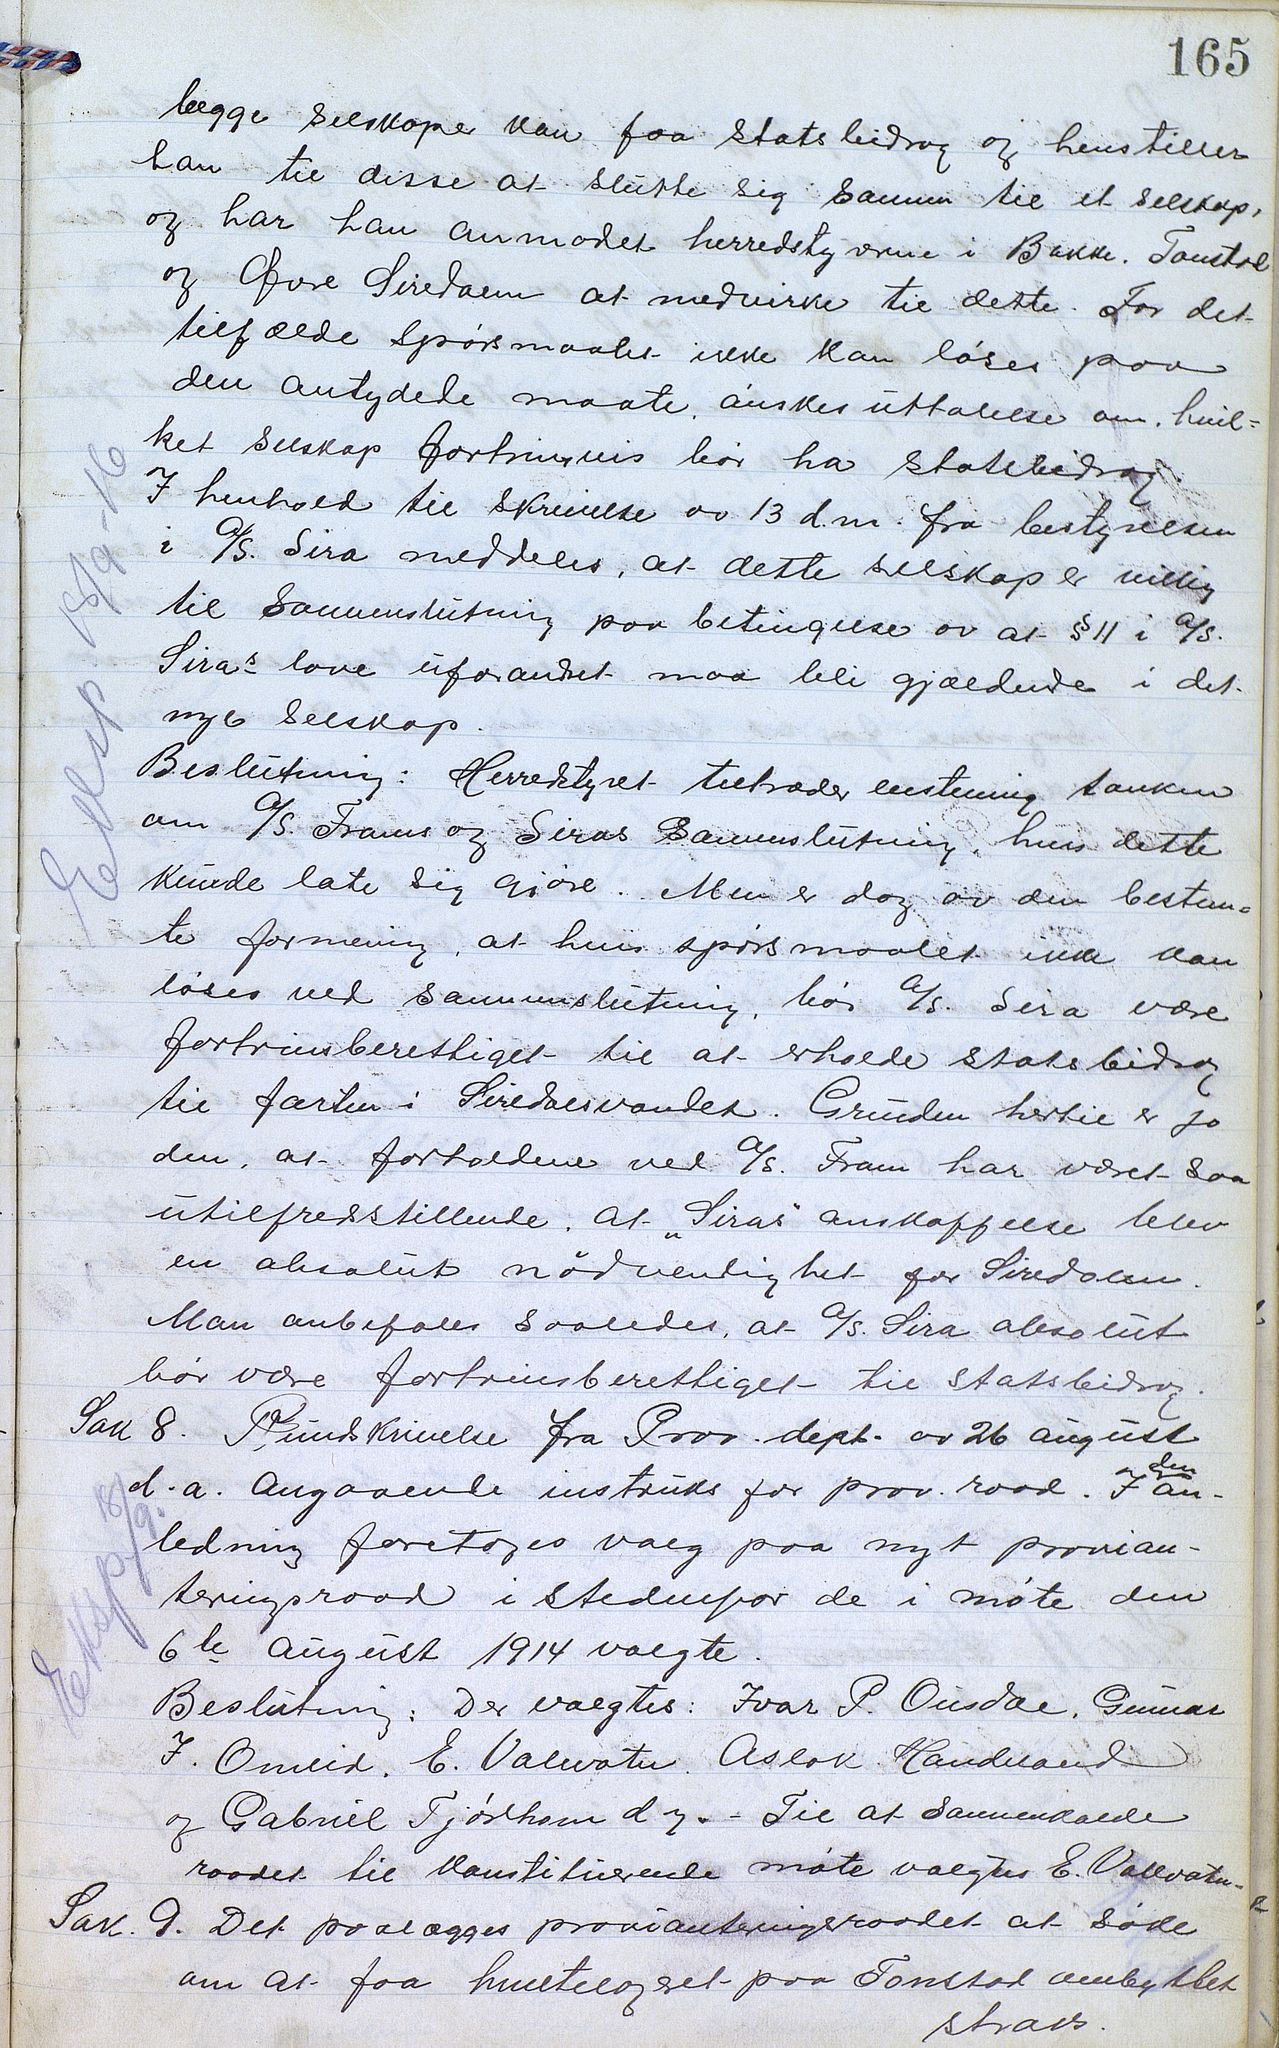 165
begge selskaper kan faa statsbidrag og henstiller
han til disse at slutte sig sammen til et selskap,
og har han anmodet herredstyrerne i Bakke, Tonstad
og Øvre Siredalen at medvirke til dette. For det
tilfælde spørsmaalet ikke kan løses paa
den antydede maate, ønskes uttalelse om, hvil=
ket selskap fortrinsvis bør ha statsbidrag.
I henhold til skrivelse av 13 d.m. fra bestyrelsen
i A/S. Sira meddeles, at dette selskap er villig
til sammenslutning paa betingelse av at § 11 i A/S.
Siras love uforandret maa bli gjældende i det
nye selskap.
Beslutning: Herredstyret tiltræder enstemmig tanken
om A/S. Frams og Siras Sammenslutning, hvis dette
kunde late sig gjøre. Men er dog av den bestem=
te formening, at hvis spørsmaalet ikke kan
løses ved sammenslutning, bør A/S. Sira være
fortrinsberettiget til at erholde statsbidrag
til farten i Siredalsvandet. Grunden hertil er jo
den, at forholdene ved A/S. Fram har været saa
utilfredsstillende, at "Siras" anskaffelse blev
en absolut nødvendighet for Siredalen.
Man anbefales saaledes, at A/S. Sira absolut
bør være fortrinsberettiget til statsbidrag.
Eksp 18/9-16
Sak 8. Rundskrivelse fra Prov. dept. av 26 august
d.a. angaaende instruks for prov. raad. I den an-
ledning foretages valg paa nyt provian-
teringsraad i stedenfor de i møte den
6te august 1914 valgte.
Eksp. 18/9.
Beslutning: Der valgtes: Ivar P. Ousdal, Gunnar
I. Omlid, E. Valevatn, Aslak Handeland
og Gabriel Tjørhom d.y. - Til at sammenkalde
raadet til konstituerende møte valgtes E. Valevatn.
Sak. 9. Det paalægges provianteringsraadet at søke
om at faa hvetelageret paa Tonstad ombyttet
straks.